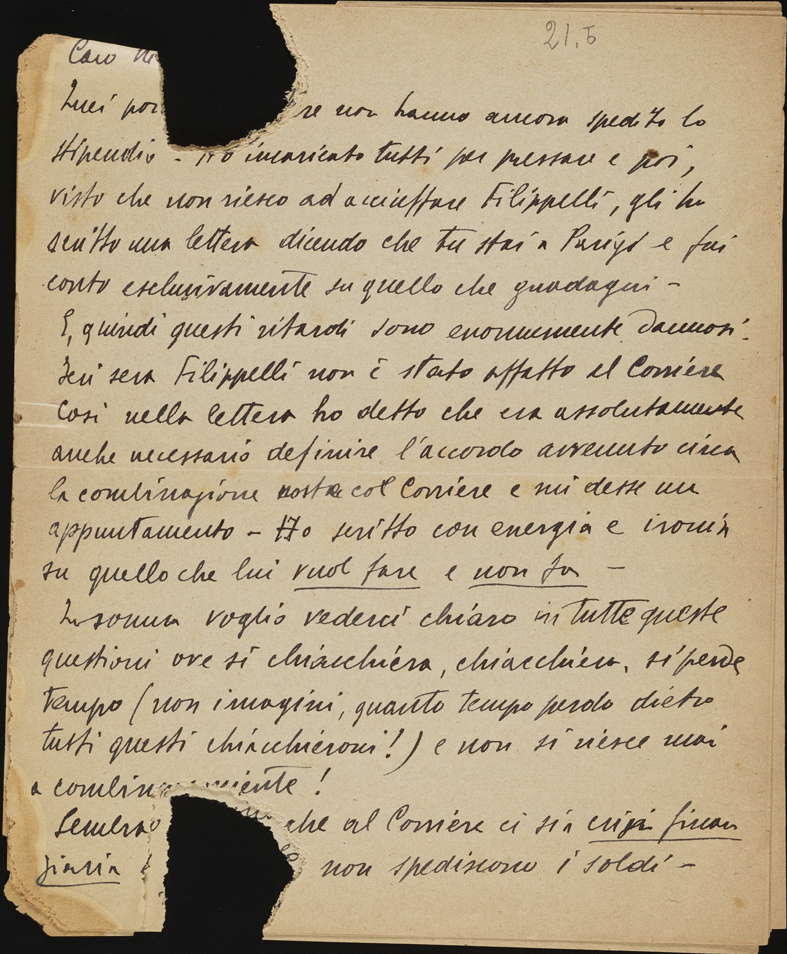 21.5
Caro
Quei por re non hanno ancora spedito lo
stipendio - Ho incaricato tutti per pressare e poi,
visto che non riesco ad acciuffare Filippelli, gli ho
scritto una lettera dicendo che tu stai a Parigi e fai
conto esclusivamente su quello che guadagni -
E, quindi questi ritardi sono enormemente dannosi.
Ieri sera Filippelli non è stato affatto al Corriere
Così nella lettera ho detto che era assolutamente
anche necessario definire l'accordo avvenuto circa
la combinazione nostra col Corriere e mi desse un
appuntamento - Ho scritto con energia e ironia
su quello che lui vuol fare e non fa -
Insomma voglio vederci chiaro in tutte queste
questioni ove si chiacchiera, chiacchiera, si perde
tempo (non imagini, quanto tempo perdo dietro
tutti questi chiacchieroni!) e non si riesce mai
a combinare niente!
Sembra che al Corriere ci sia crisi finan
ziaria non spediscono i soldi -